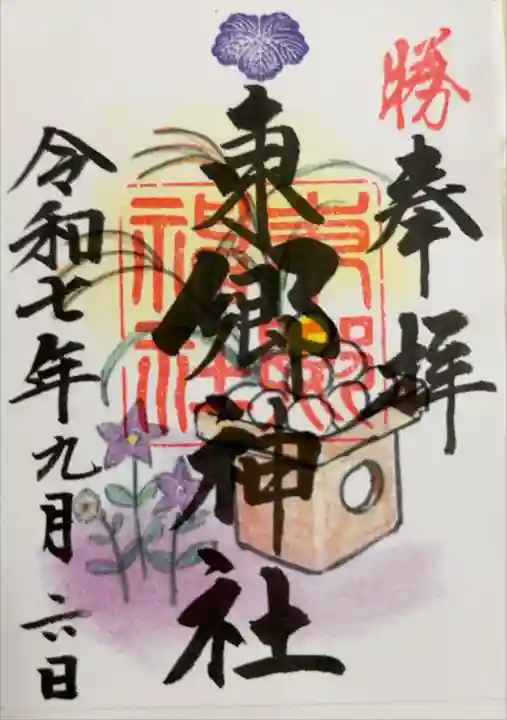 勝
奉拝
東郷神社
東郷神社
令和七年九月六日